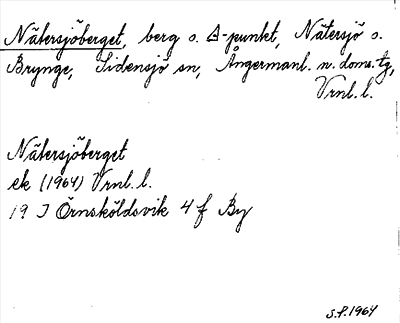 Nätersjöberget, berg o. Δ-punkt, Nätersjö o.
Brynge, Sidensjö sn, Ångermanl. n. doms. tg,
Vrnl. l.
Nätersjöberget
ek (1964) Vrnl. l.
19 J Örnsköldsvik 4 f By
S.P. 1964